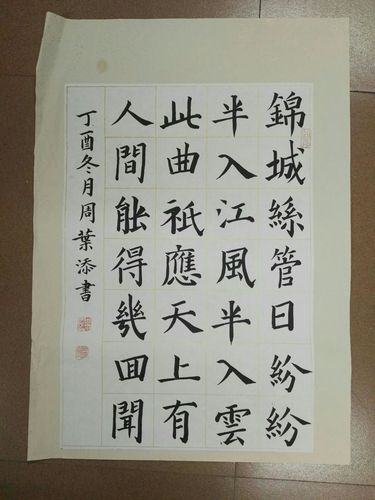 錦城絲管日紛紛
半入江風半入雲
此曲祇應天上有
人間能得幾回聞
丁酉冬月周葉添書